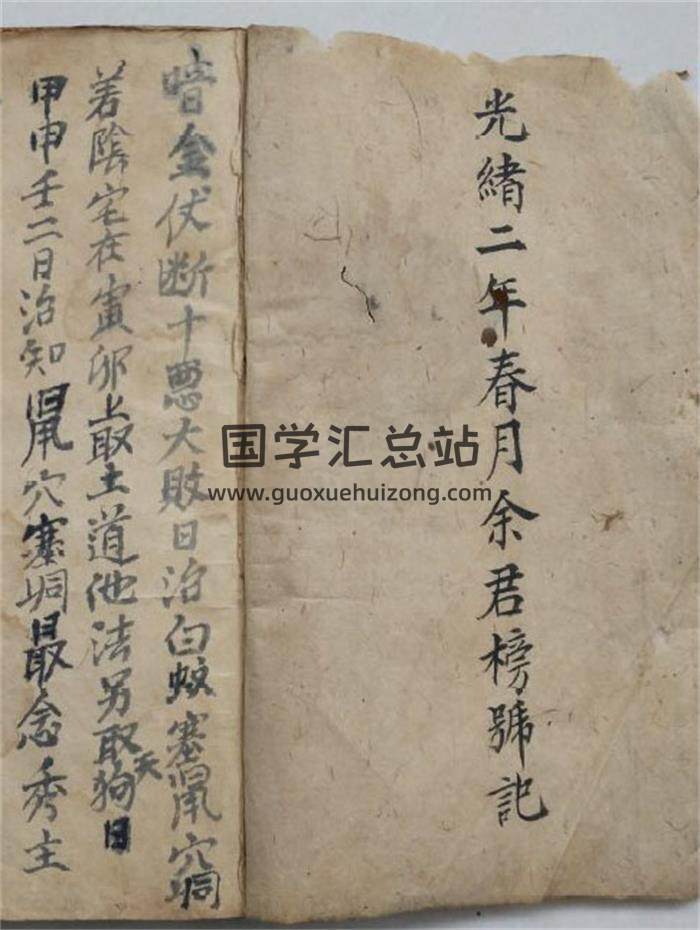 光緒二年春月余君榜號記
暗金伏断十惡大敗日治白蚁塞鼠穴垌
若陰宅在寅卯上取土道他法另取天狗日
甲申壬二日治知鼠穴塞垌最念秀主
国学汇总站
www.guoxuehuizong.com